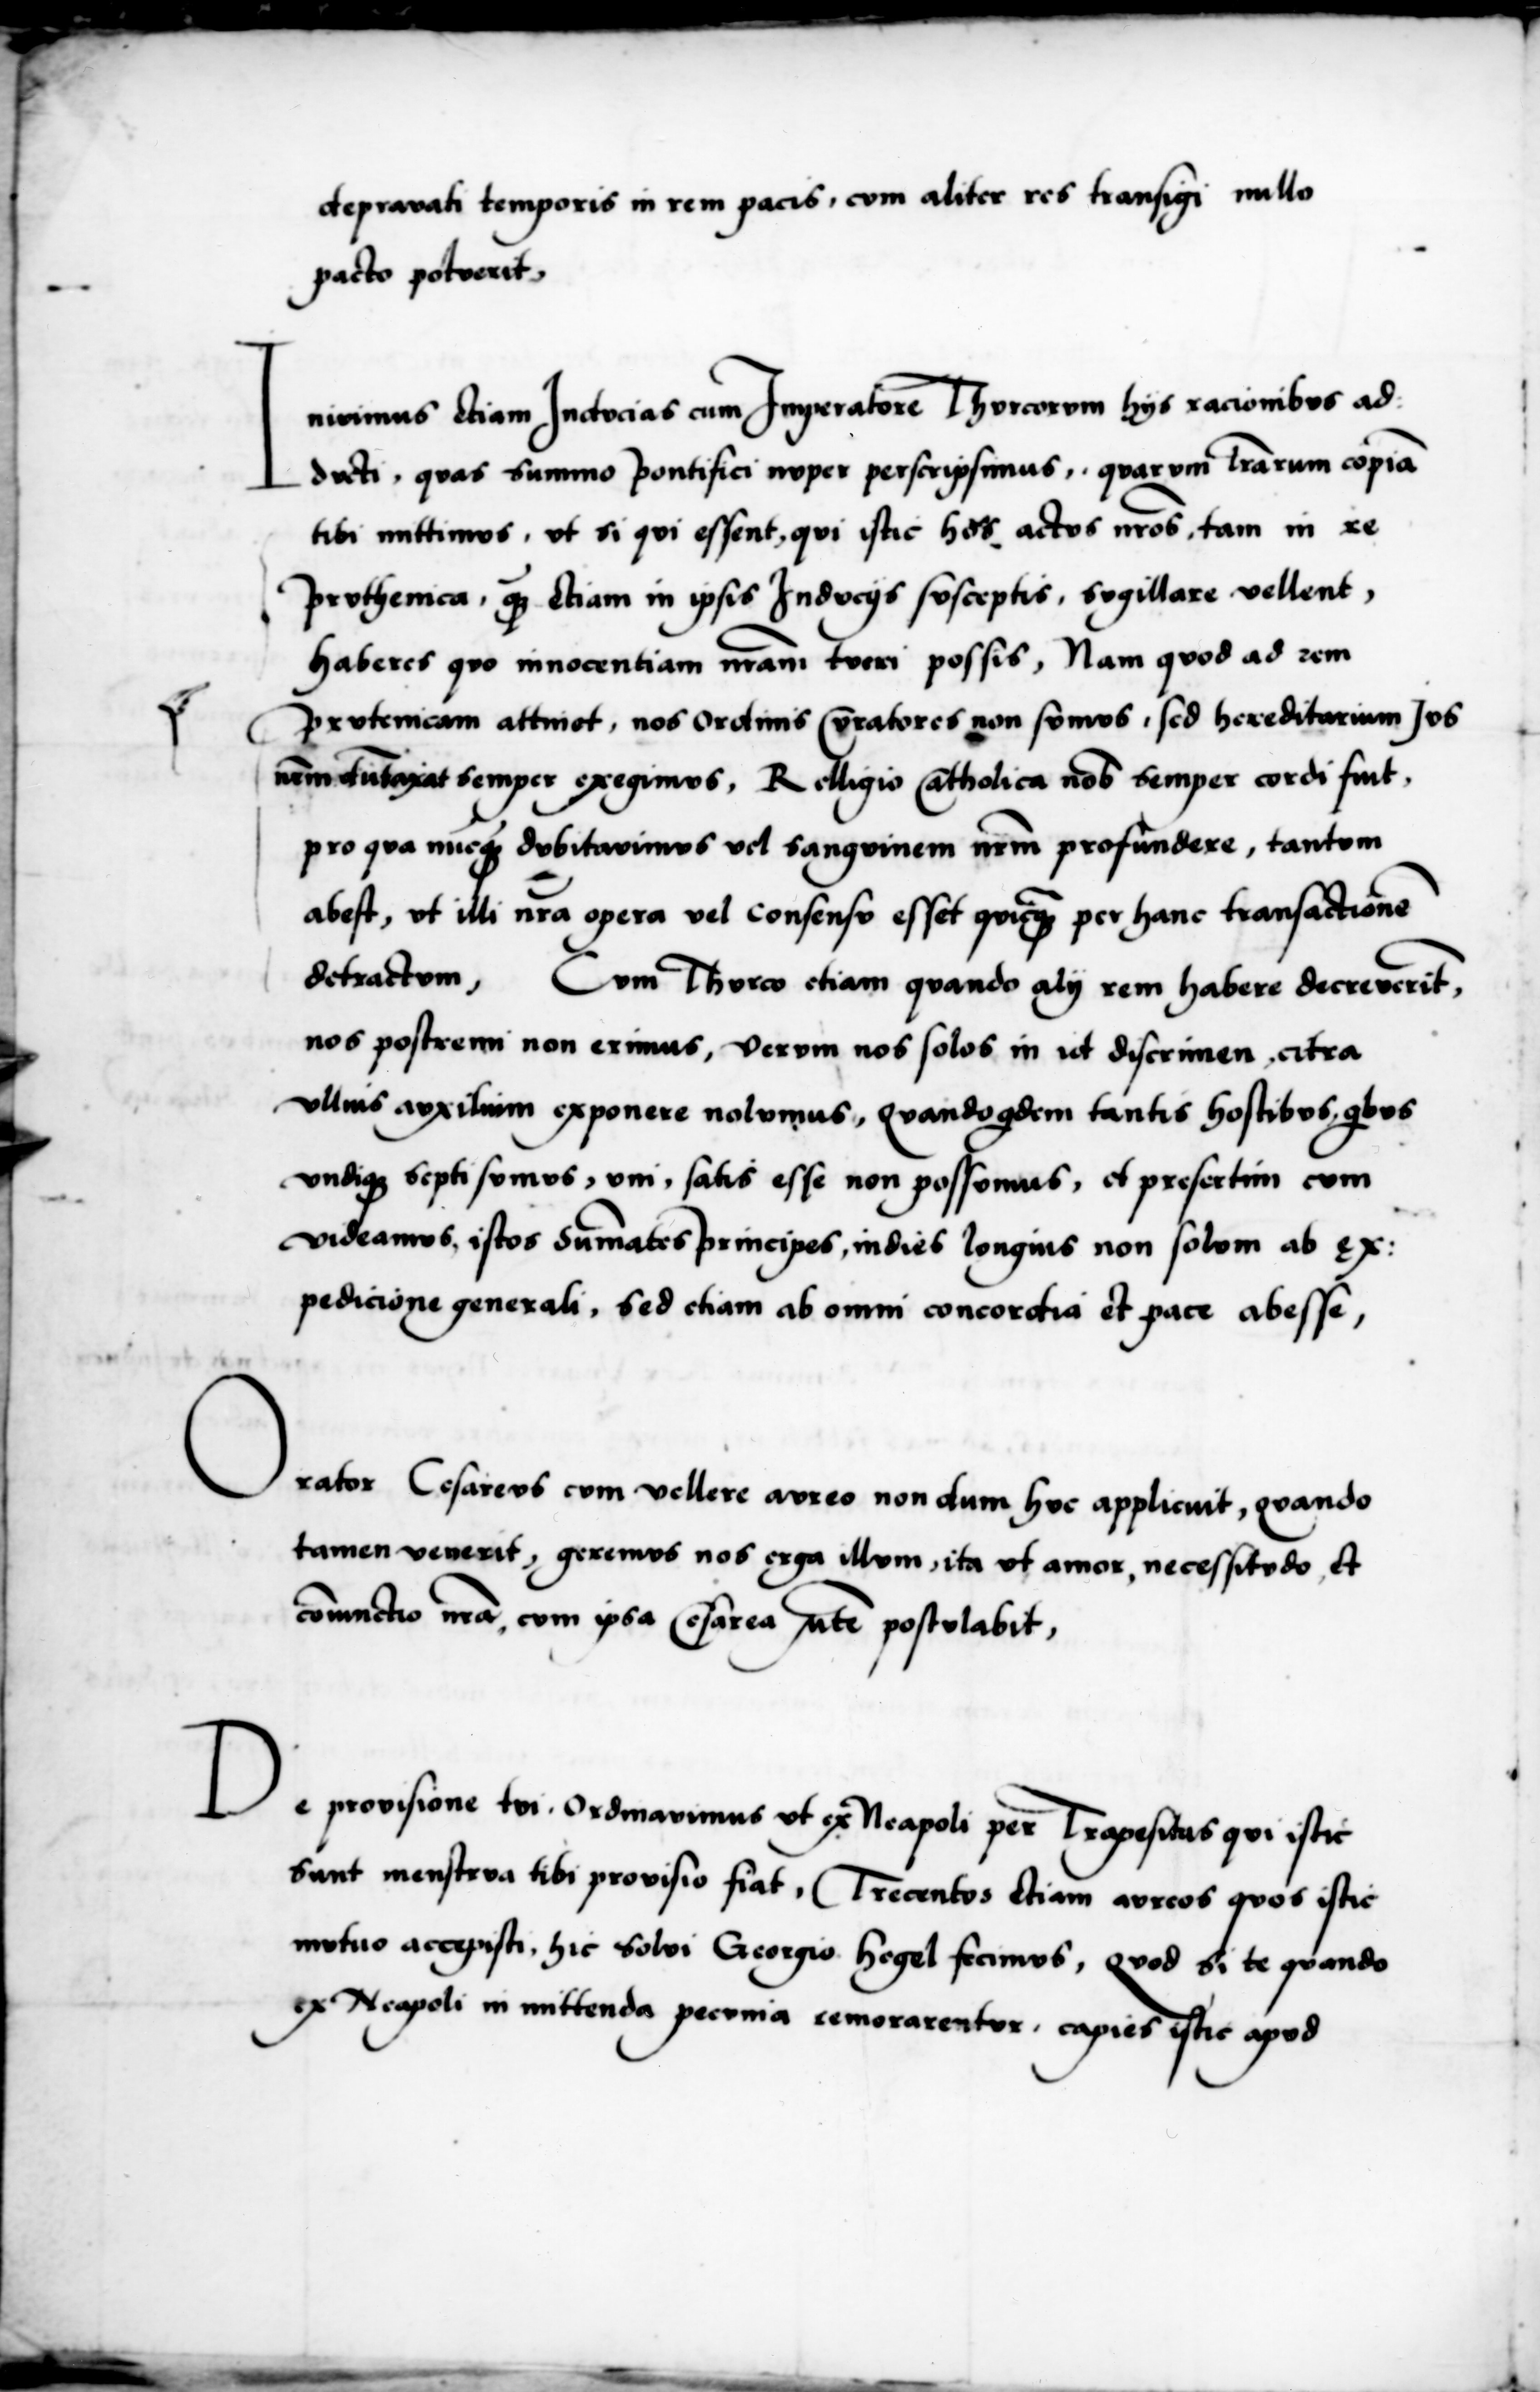 depravati temporis in rem pacis, cvm aliter res transigi nullo
pacto potverit,
Inivimus etiam Indvcias cum Imperatore Thvrcorvm hijs racionibvs ad:
dvcti, qvas summo pontifici nvper perscripsimus, qvarvm lr̃arum copiã
tibi mittimvs, vt si qvi essent, qvi istic hos actvs nr̃os, tam in re
prvthenica, q̃ꝫ etiam in ipsis Indvcijs svsceptis, svgillare vellent,
haberes qvo innocentiam nr̃am tveri possis, Nam qvod ad rem
prvtenicam attinet, nos Ordinis Cvratores non svmvs, sed hereditarium Jvs
nr̃m dũtaxat semper exegimvs, Relligio Catholica nob̃ semper cordi fuit,
pro qva nũcq̃ꝫ dvbitavimvs vel sangvinem nr̃m profundere, tantvm
abest, vt illi nr̃a opera vel consensv esset qvicq̃ꝫ per hanc transactionẽ
detractvm, Cvm Thvrco etiam qvando alij rem habere decreverĩt,
nos postremi non erimus, Vervm nos solos in id discrimen, citra
vllius avxilium exponere nolvmus, Qvandoqdem tantis hostibvs, qbvs
vndiqꝫ septi svmvs, vni, satis esse non possvmus, et presertim cvm
videamvs, istos Sum̃ates principes, indies longius non solvm ab ex:
pedicione generali, sed etiam ab omni concordia et pace abesse,
Orator Cesarevs cvm vellere avreo non dum hvc applicuit, Qvando
tamen venerit, geremvs nos erga illvm, ita vt amor, necessitvdo, et
cõiunctio nr̃a, cvm ipsa Cesarea M̃te postvlabit,
De provisione tvi, Ordinavimus vt ex Neapoli per Trapesitas qvi istic
sunt menstrva tibi provisio fiat, Trecentos etiam avreos qvos istic
mvtuo accepisti, hic solvi Georgio Hegel fecimvs, Qvod si te qvando
ex Neapoli in mittenda pecvnia remorarentvr, capies istic apvd